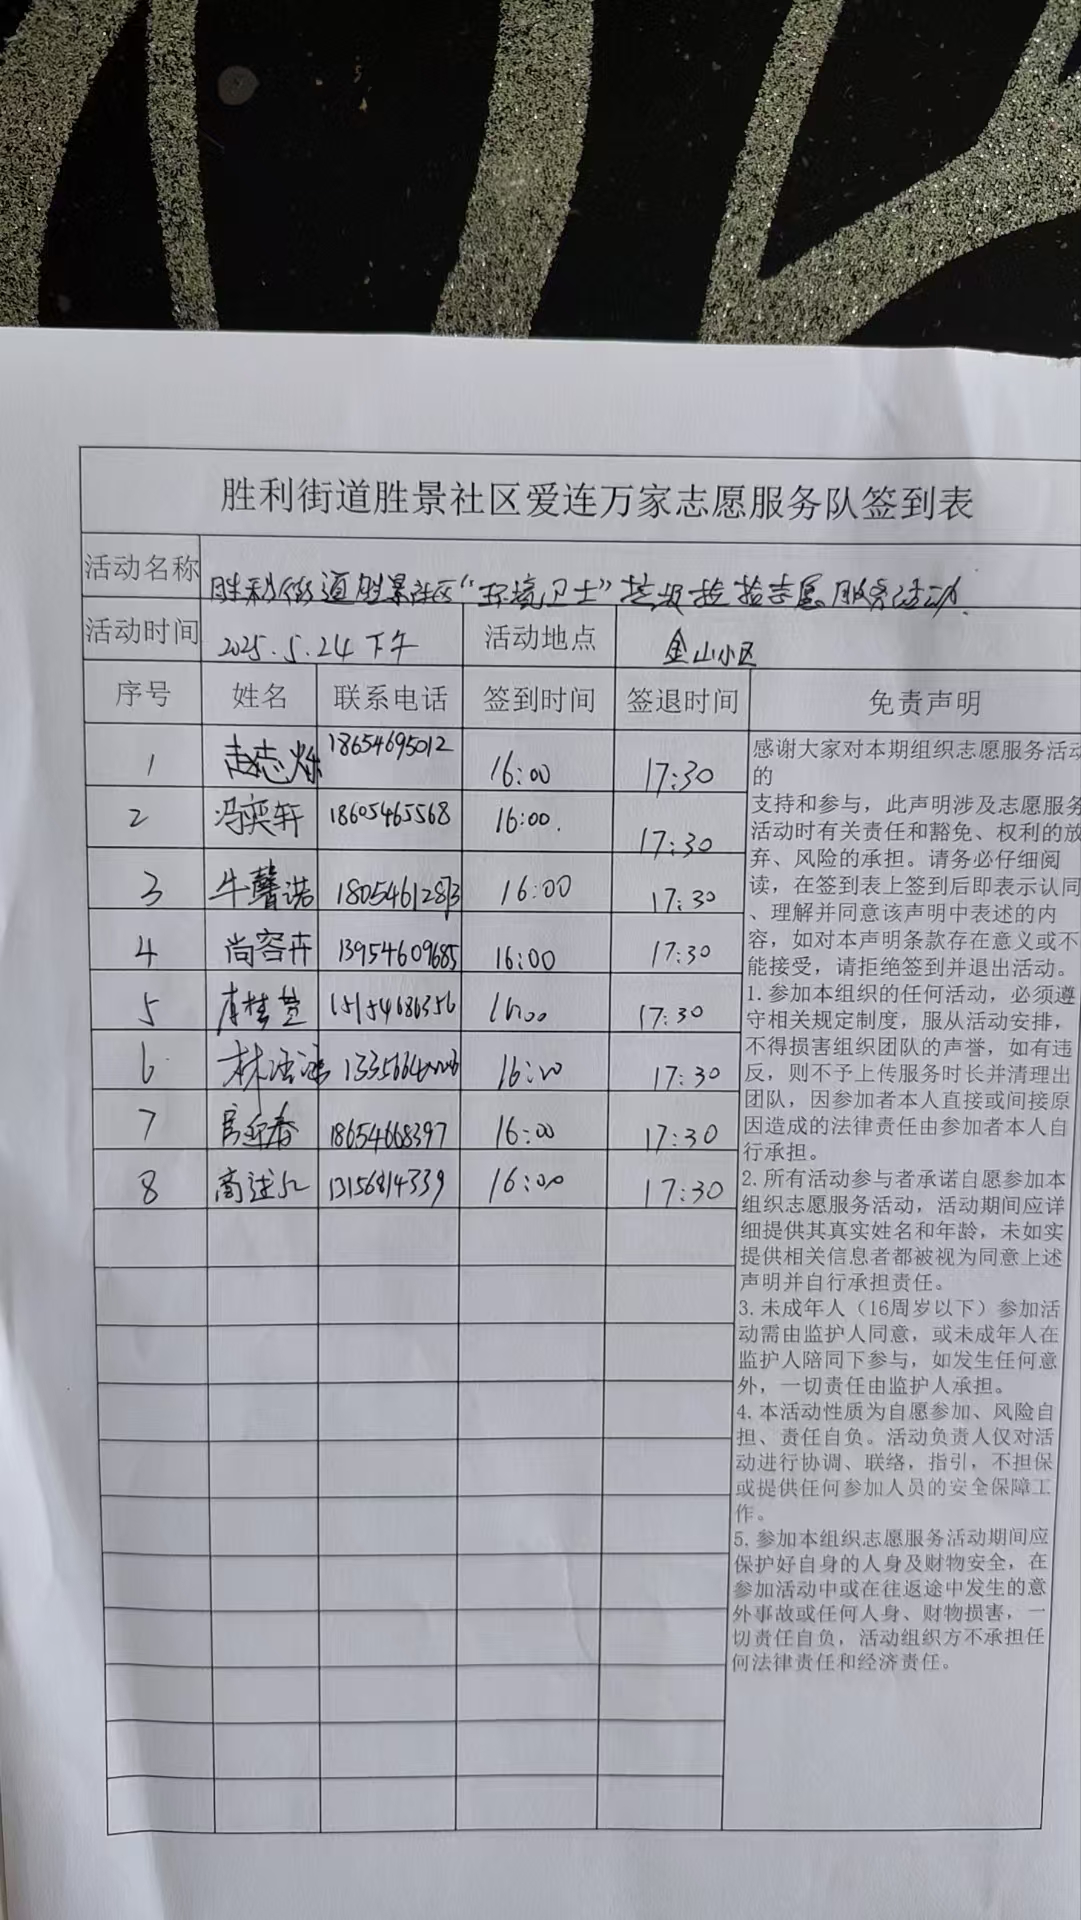 胜利街道胜景社区爱连万家志愿服务队签到表
活动名称 胜利街道胜景社区“环境卫士”垃圾捡拾志愿服务活动.
活动时间 2025.5.24下午 活动地点 金山小区
序号 姓名 联系电话 签到时间 签退时间 免责声明
1 赵志烁 18654695012 16:00 17:30
2 冯奕轩 18605465568 16:00. 17:30
3 牛馨诺 18054612873 16:00 17:30
4 尚容卉 13954609685 16:00 17:30
5 15154686356 16:00 17:30
6 17:30
7 18654668397 16:00 17:30
8 13156814339 16:00 17:30
感谢大家对本期组织志愿服务活动
的
支持和参与，此声明涉及志愿服务
活动时有关责任和豁免、权利的放
弃、风险的承担。请务必仔细阅
读，在签到表上签到后即表示认同
、理解并同意该声明中表述的内
容，如对本声明条款存在意义或不
能接受，请拒绝签到并退出活动。
1. 参加本组织的任何活动，必须遵
守相关规定制度，服从活动安排，
不得损害组织团队的声誉，如有违
反，则不予上传服务时长并清理出
团队，因参加者本人直接或间接原
因造成的法律责任由参加者本人自
行承担。
2. 所有活动参与者承诺自愿参加本
组织志愿服务活动，活动期间应详
细提供其真实姓名和年龄，未如实
提供相关信息者都被视为同意上述
声明并自行承担责任。
3. 未成年人（16周岁以下）参加活
动需由监护人同意，或未成年人在
监护人陪同下参与，如发生任何意
外，一切责任由监护人承担。
4. 本活动性质为自愿参加、风险自
担、责任自负。活动负责人仅对活
动进行协调、联络，指引，不担保
或提供任何参加人员的安全保障工
作。
5. 参加本组织志愿服务活动期间应
保护好自身的人身及财物安全，在
参加活动中或在往返途中发生的意
外事故或任何人身、财物损害，一
切责任自负，活动组织方不承担任
何法律责任和经济责任。